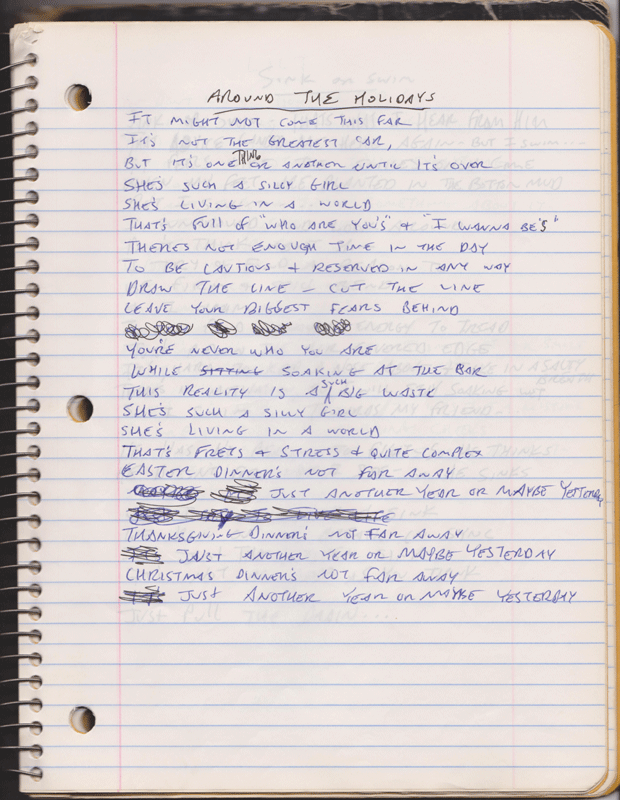 AROUND THE HOLIDAYS
IT MIGHT NOT COME THIS FAR
IT'S NOT THE GREATEST CAR,
BUT IT'S ONE THING OR ANOTHER UNTIL IT'S OVER
SHE'S SUCH A SILLY GIRL
SHE'S LIVING IN A WORLD
THAT'S FULL OF "WHO ARE YOU'S" & "I WANNA BE'S"
THERE'S NOT ENOUGH TIME IN THE DAY
TO BE CAUTIOUS & RESERVED IN ANY WAY
DRAW THE LINE - CUT THE LINE
LEAVE YOUR BIGGEST FEARS BEHIND
YOU'RE NEVER WHO YOU ARE
WHILE SITTING SOAKING AT THE BAR
THIS REALITY IS A SUCH BIG WASTE
SHE'S SUCH A SILLY GIRL
SHE'S LIVING IN A WORLD
THAT'S FRETS & STRESS & QUITE COMPLEX
EASTER DINNER'S NOT FAR AWAY
JUST ANOTHER YEAR OR MAYBE YESTERDAY
THANKSGIVING DINNER'S NOT FAR AWAY
JUST ANOTHER YEAR OR MAYBE YESTERDAY
CHRISTMAS DINNER'S NOT FAR AWAY
JUST ANOTHER YEAR OR MAYBE YESTERDAY